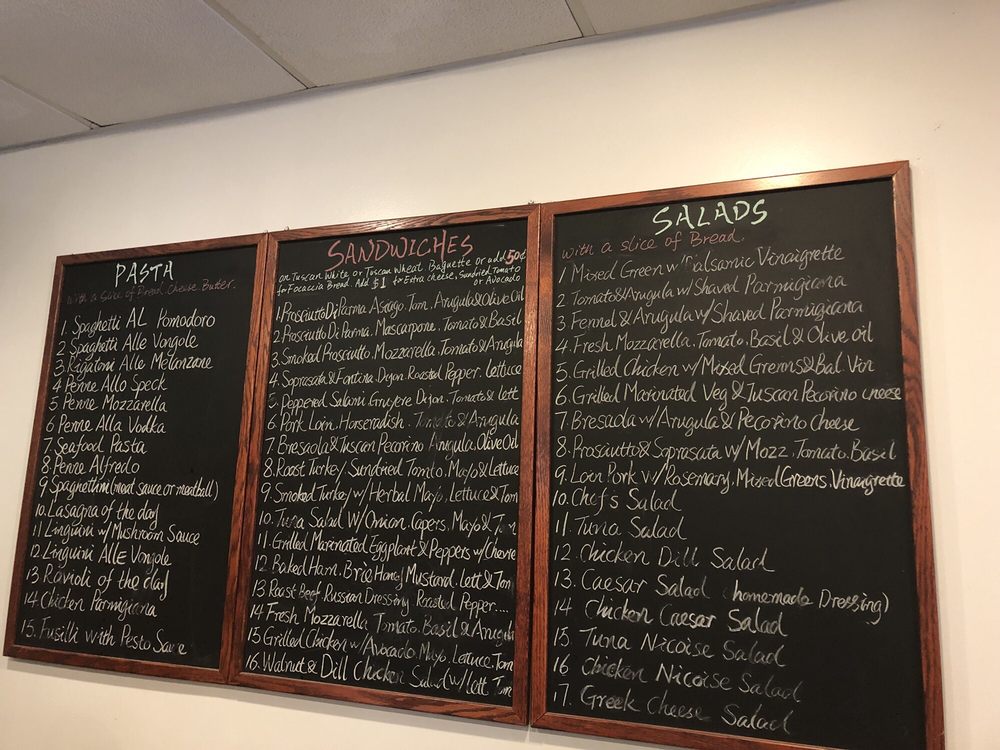 PASTA
with a slice of Bread. Cheese. Butter.
1. Spaghetti AL Pomodoro
2 Spaghetti Alle Vongole
3. Rigatoni Alle Melanzone
4 Penne Allo Speck
5 Penne Mozzarella
6 Penne Alla Vodka
7. Seafood Pasta
8. Penne Alfredo
9 Spaghettini (meat sauce or meatball)
10. Lasagna of the day
11 Linguini w/ Mushroom Sauce
12. Linguini AllE Vongole
13 Ravioli of the day
14. Chicken Parmigiana
15. Fusilli with Pesto Sauce
SANDWICHES
on Tuscan White or Tuscan Wheat Baguette or add 50¢
for Focaccia Bread. Add $1 for Extra cheese, Sundried Tomato
or Avocado
1. Prosciutto Di Parma Asiago. Tom. Arugula & Olive Oil
2. Prosciutto Di Parma. Mascarpone. Tomato & Basil
3. Smoked Prosciutto. Mozzarella. Tomato & Arugula
4. Soprasata & Fontina Dijon Roasted Pepper. Lettuce
5. Peppered Salami Gruyere Dijon. Tomato & Lett
6. Pork Loin. Horseradish. Tomato & Arugula
7. Bresaola & Tuscan Pecorino Arugula. Olive Oil
8. Roast Turkey Sundried Tomto. Mayo & Lettuce
9. Smoked Turkey w/ Herbal Mayo. Lettuce & Tom
10. Tuna Salad W/ Onion. Capers. Mayo & Tom
11. Grilled Marenated Eggplant & Peppers w/ Chevre
12 Baked Ham. Brie Honey Mustard. Lett & Tom
13 Roast Beef. Russian Dressing. Roasted Pepper....
14 Fresh Mozzarella Tomato. Basil & Arugula
15 Grilled Chicken w/ Avocado. Mayo. Lettuce. Tom
16. Walnut & Dill Chicken Salad w/ Lett Tom
SALADS
with a slice of Bread.
1 Mixed Green w/ Balsamic Vinaigrette
2 Tomato & Arugula w/ Shaved Parmigiana
3 Fennel & Arugula w/ Shaved Parmigiana
4. Fresh Mozzarella. Tomato. Basil & Olive oil
5. Grilled Chicken w/ Mixed Greens & Bal. Vin
6. Grilled Marinated Veg & Tuscan Pecorino cheese
7. Bresaola w/ Arugula & Pecorino Cheese
8. Prosciutto & Soprasata w/ Mozz. Tomato. Basil
9. Loin Pork w/ Rosemary. Mixed Greens. Vinaigrette
10. Chef's Salad
11. Tuna Salad
12. Chicken Dill Salad
13. Caesar Salad (homemade Dressing)
14 Chicken Caesar Salad
15 Tuna Nicoise Salad
16 Chicken Nicoise Salad
17. Greek Cheese Salad